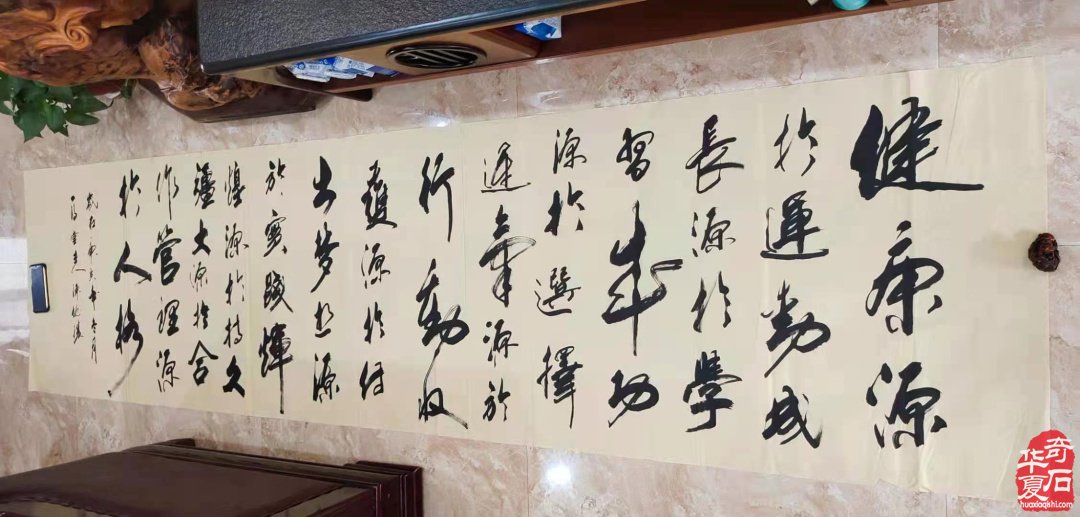 健康源
於運動成
長源於學
習成功
源於選擇
運氣源於
行動收
獲源於付
出梦想源
於實踐輝
煌源於持久
疆大源於合
作管理源
於人格
华夏
奇石
huaxiaqishi.com